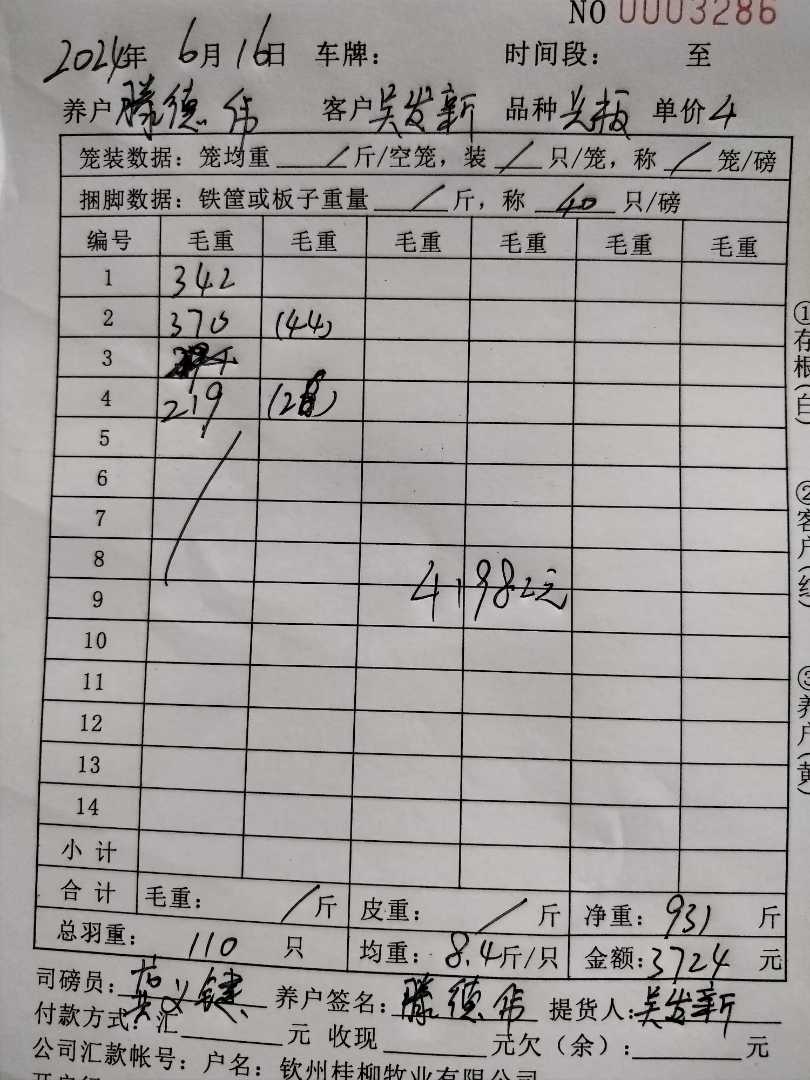 NO 0003286
2024年 6月16日 车牌: 时间段: 至
养户 滕德伟 客户 吴发新 品种 单价 4
笼装数据: 笼均重 / 斤/空笼, 装 / 只/笼, 称 / 笼/磅
捆脚数据: 铁筐或板子重量 / 斤, 称 40 只/磅
编号 毛重 毛重 毛重 毛重 毛重 毛重
1 342
2 370 (44)
3
4 219 (28)
5
6
7
8
9 4198.2元
10
11
12
13
14
小计
合计 毛重: / 斤 皮重: / 斤 净重: 931 斤
总羽重: 110 只 均重: 8.4 斤/只 金额: 3724 元
司磅员: 养户签名: 滕德伟 提货人: 吴发新
付款方式: 汇 元 收现 元欠(余): 元
公司汇款帐号: 户名: 钦州桂柳牧业有限公司
①存根(白)
②客户(红)
③养户(黄)